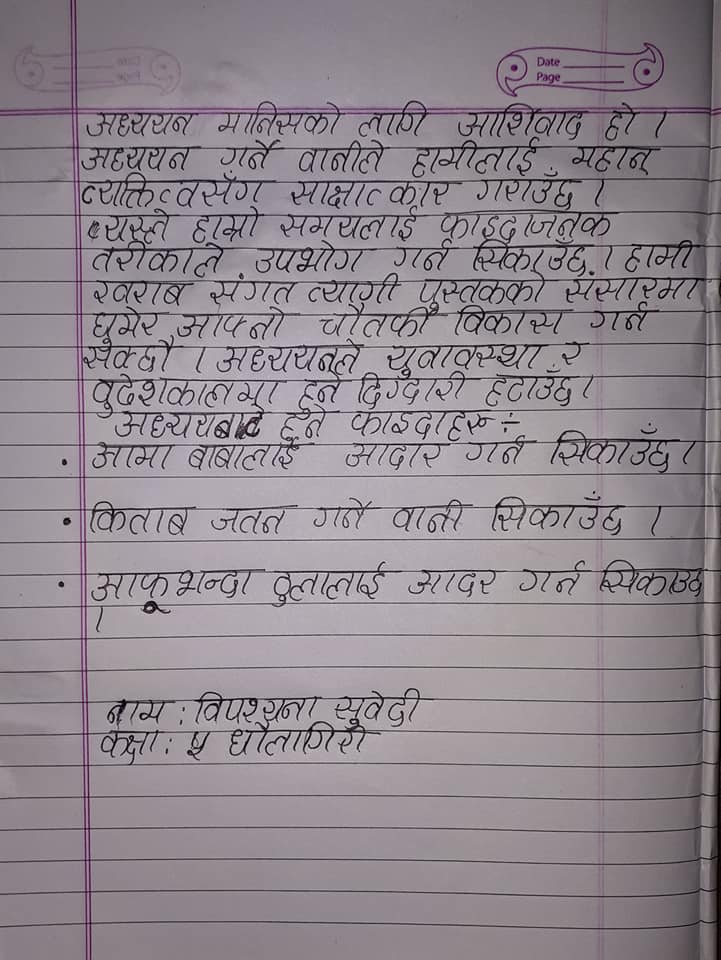 Date
Page
अध्ययन मानिसको लागि आर्शिवाद हो ।
अध्ययन गर्ने वानीले हामीलाई महान्
व्यक्तित्वसँग साक्षात्कार गराउँछ ।
त्यस्तै हाम्रो समयलाई फाइदाजनक
तरीकाले उपभोग गर्न सिकाउँछ । हामी
खराब संगत त्यागी पुस्तकको संसारमा
घुमेर आफ्नो चौतर्फी विकास गर्न
सक्दौ । अध्ययनले युवावस्था र
वुढेशकालमा हुने दिग्दारी हटाउँछ ।
अध्ययबाट हुने फाइदाहरू :-
• आमा बाबालाई आदार गर्न सिकाउँछ ।
• किताब जतन गर्ने वानी सिकाउँछ ।
• आफूभन्दा ठुलालाई आदर गर्न सिकाउछ
।
नाम : विपश्यना सुवेदी
कक्षा : ५ धौलागिरी